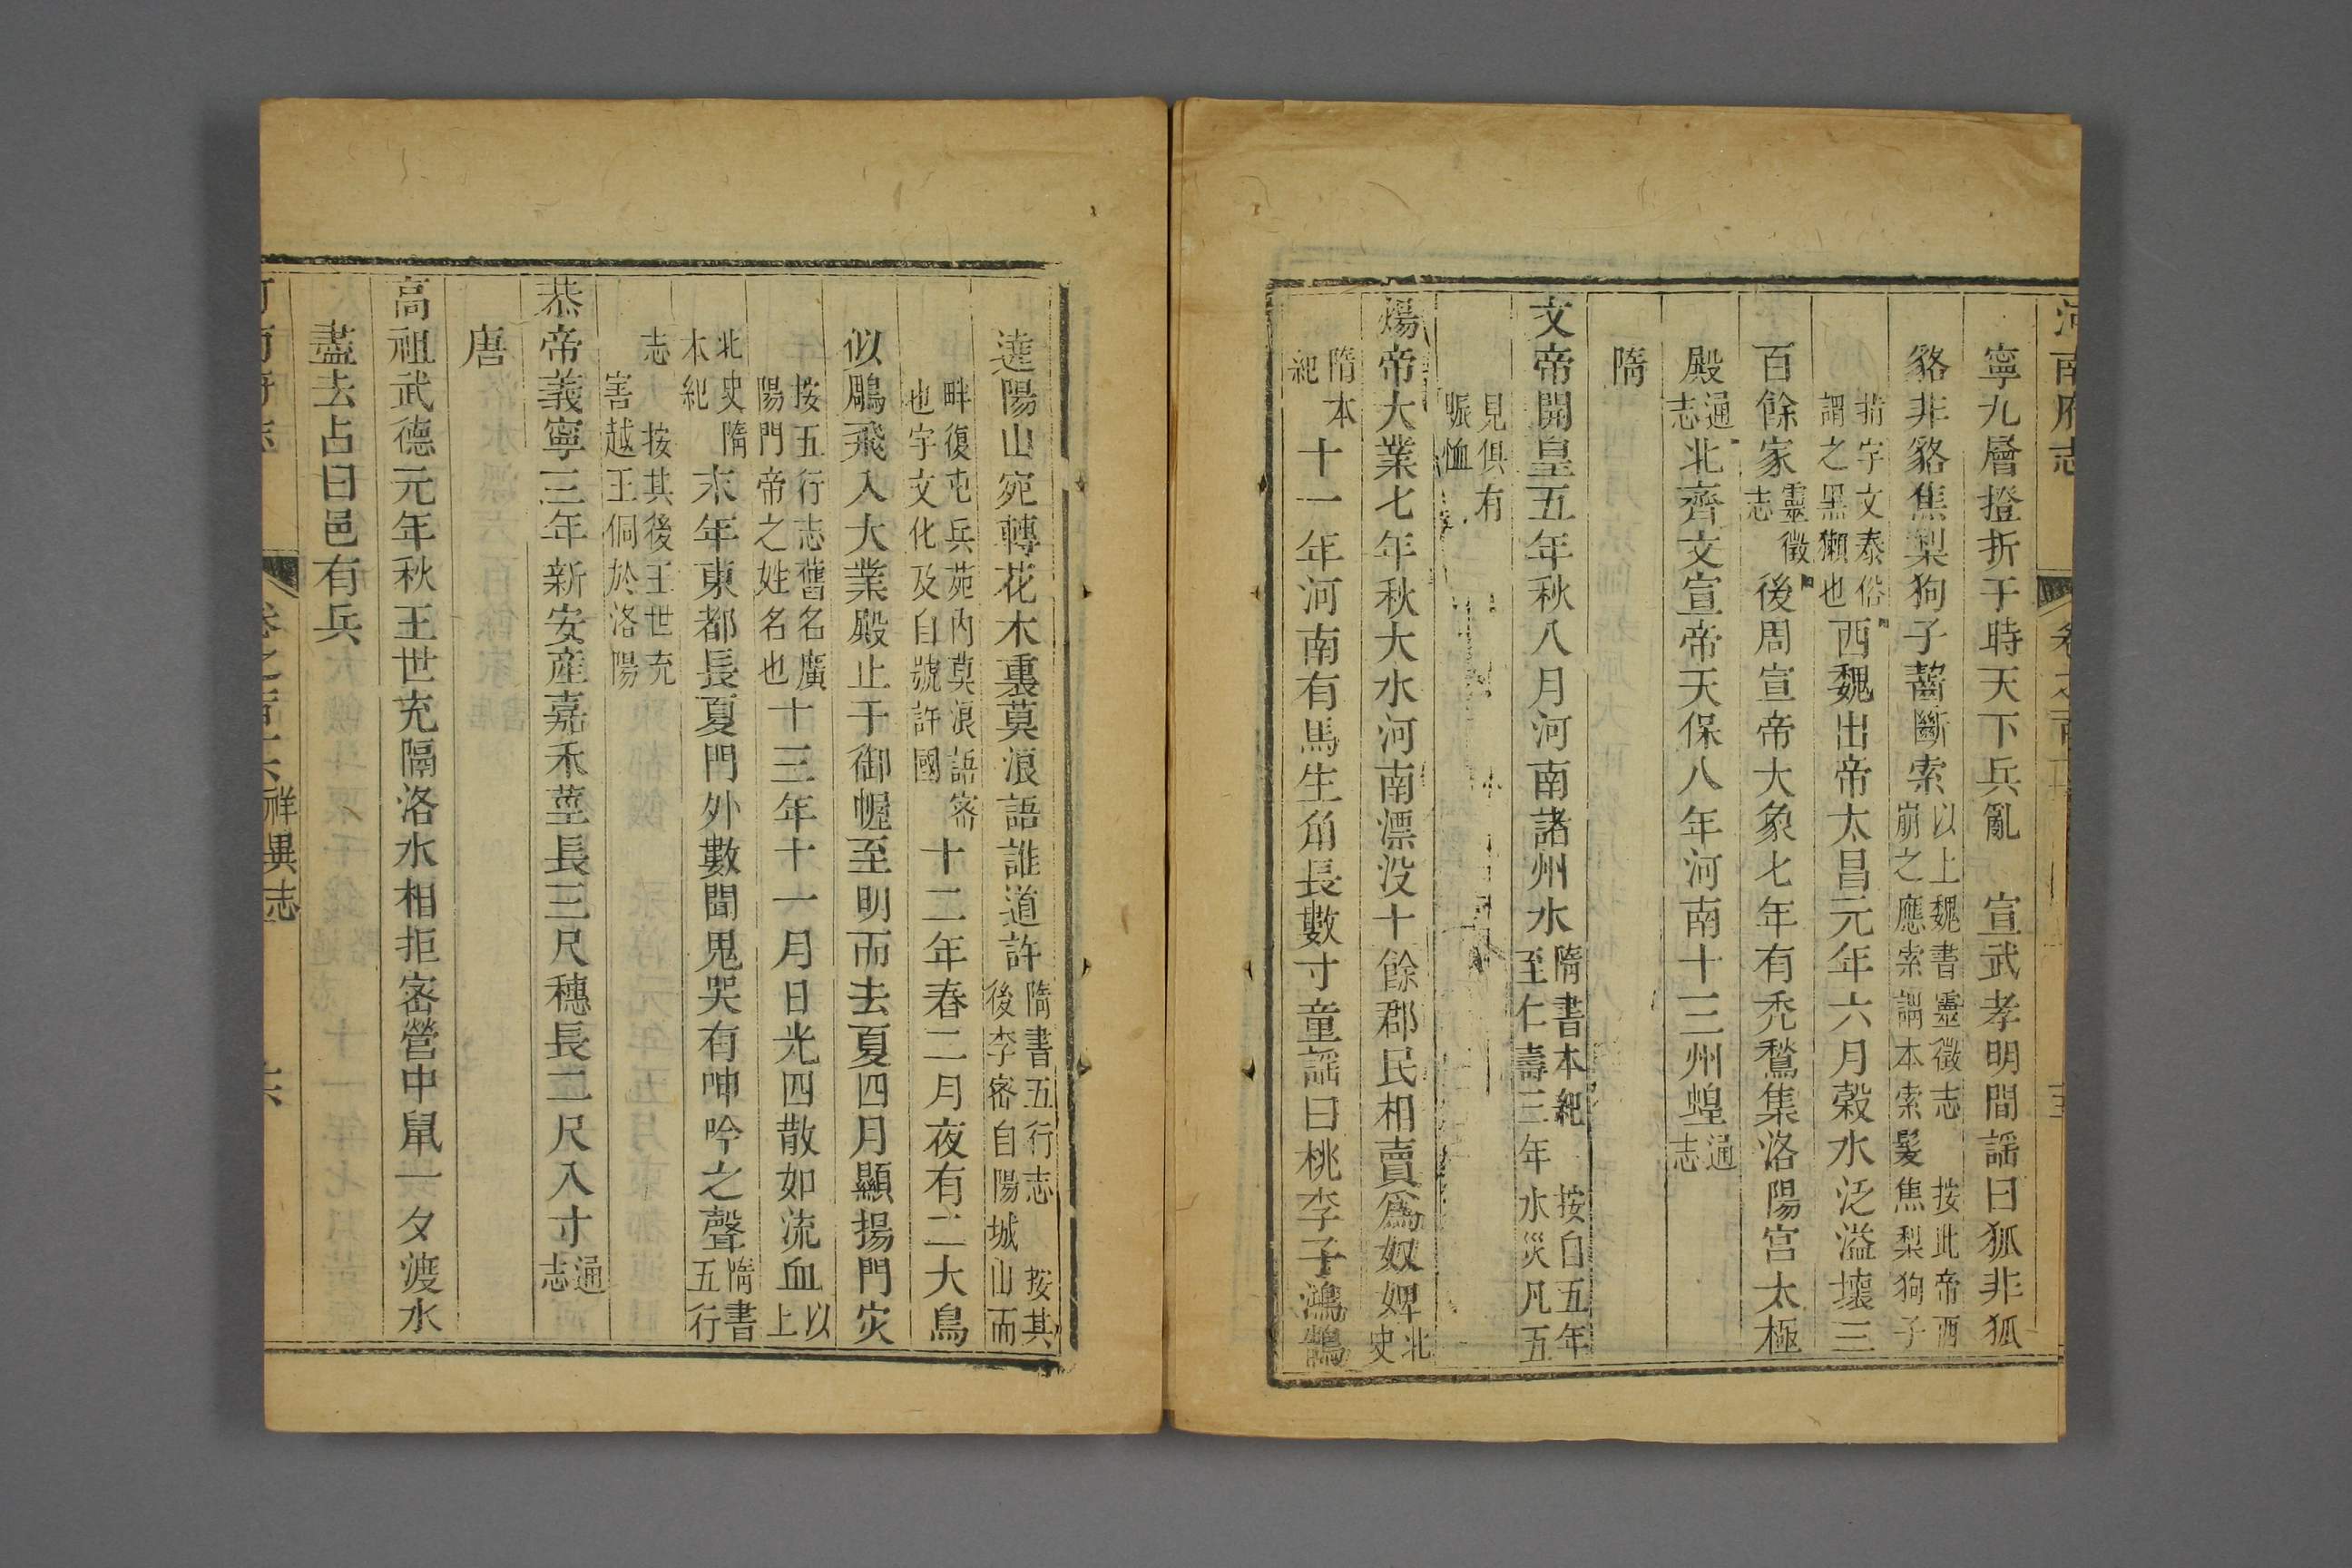 河南府志
寧九層撜折于時天下兵亂　宣武孝明間謡曰狐非狐
貉非貉焦梨狗子齧斷索以上魏書靈徵志　按此帝西崩之應索謂本索髮焦梨狗子
指宇文泰俗謂之黑獺也西魏出帝太昌元年六月榖水泛溢壞三
百餘家靈徵志後周宣帝大象七年有禿鶖集洛陽宫太極
殿通志北齊文宣帝天保八年河南十三州蝗通志
隋
文帝開皇五年秋八月河南諸州水隋書本紀　按自五年至仁壽三年水災凡五
見俱有賑恤
煬帝大業七年秋大水河南漂没十餘郡民相賣爲奴婢北史
隋本紀十一年河南有馬生角長數寸童謡曰桃李子鴻鵠
遶陽山宛轉花木裏莫浪語誰道許隋書五行志　按其後李密自陽城山而
畔復屯兵苑内莫浪語密也宇文化及自號許國十二年春二月夜有二大鳥
似鵰飛入大業殿止于御幄至明而去夏四月顯揚門灾
按五行志舊名廣陽門帝之姓名也十三年十一月日光四散如流血以上
北史隋本紀末年東都長夏門外數聞鬼哭有呻吟之聲隋書五行
志　按其後王世充害越王侗於洛陽
恭帝義寧三年新安產嘉禾莖長三尺穗長二尺入寸通志
唐
高祖武德元年秋王世充隔洛水相拒密營中鼠一夕渡水
盡去占曰邑有兵
祥異志